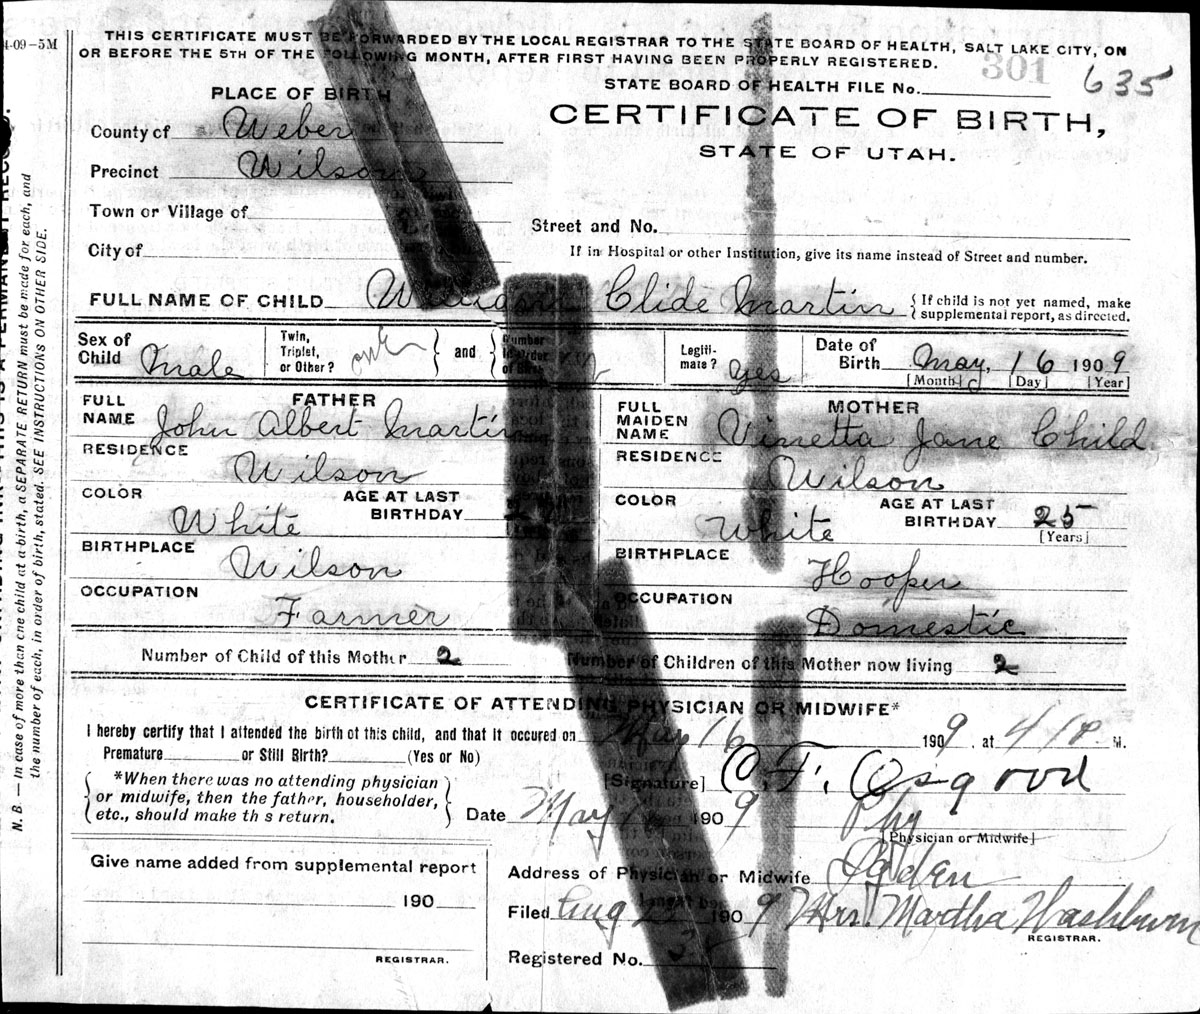 4-09-5M
THIS CERTIFICATE MUST BE FORWARDED BY THE LOCAL REGISTRAR TO THE STATE BOARD OF HEALTH, SALT LAKE CITY, ON
OR BEFORE THE 5TH OF THE FOLLOWING MONTH, AFTER FIRST HAVING BEEN PROPERLY REGISTERED.
301
635
STATE BOARD OF HEALTH FILE No.
PLACE OF BIRTH
CERTIFICATE OF BIRTH,
STATE OF UTAH.
County of Weber
Precinct Wilson
Town or Village of
Street and No.
City of
If in Hospital or other Institution, give its name instead of Street and number.
FULL NAME OF CHILD William Clide Martin { If child is not yet named, make
supplemental report, as directed.
Sex of Child Male
Twin, Triplet, or Other? } and { Number in Order of Birth
Legiti- mate? yes
Date of Birth May, 16 1909
[Month] [Day] [Year]
FATHER
FULL NAME John Albert Martin
RESIDENCE Wilson
COLOR White AGE AT LAST BIRTHDAY
BIRTHPLACE Wilson
OCCUPATION Farmer
MOTHER
FULL MAIDEN NAME Vinetta Jane Child
RESIDENCE Wilson
COLOR White AGE AT LAST BIRTHDAY 25
[Years]
BIRTHPLACE Hooper
OCCUPATION Domestic
Number of Child of this Mother 2 Number of Children of this Mother now living 2
CERTIFICATE OF ATTENDING PHYSICIAN OR MIDWIFE*
I hereby certify that I attended the birth of this child, and that it occured on May 16 1909. at 4 M.
Premature or Still Birth? (Yes or No)
[Signature] O. F. Osgood
{ *When there was no attending physician
or midwife, then the father, householder,
etc., should make th s return. }
Date May 1909 Phy
[Physician or Midwife]
Address of Physician or Midwife Ogden
Filed Aug 1909 Mrs. Martha Washburn
REGISTRAR.
Registered No.
Give name added from supplemental report
190
REGISTRAR.
N. B. — In case of more than one child at a birth, a SEPARATE RETURN must be made for each, and
the number of each, in order of birth, stated. SEE INSTRUCTIONS ON OTHER SIDE.